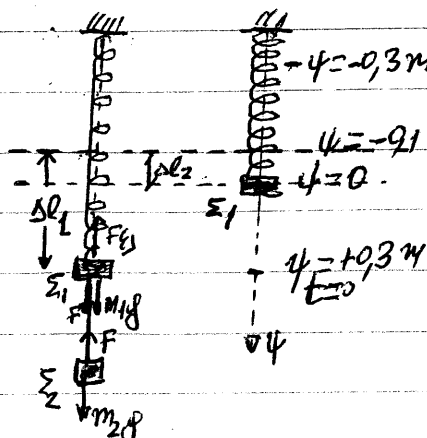 -ψ=-0,3 m
ψ=-0,1
Δl₂
ψ=0
Δl₁
Σ₁
Fελ
ψ=+0,3 m
t=0
Σ₁
F
m₁g
F
ψ
Σ₂
m₂g